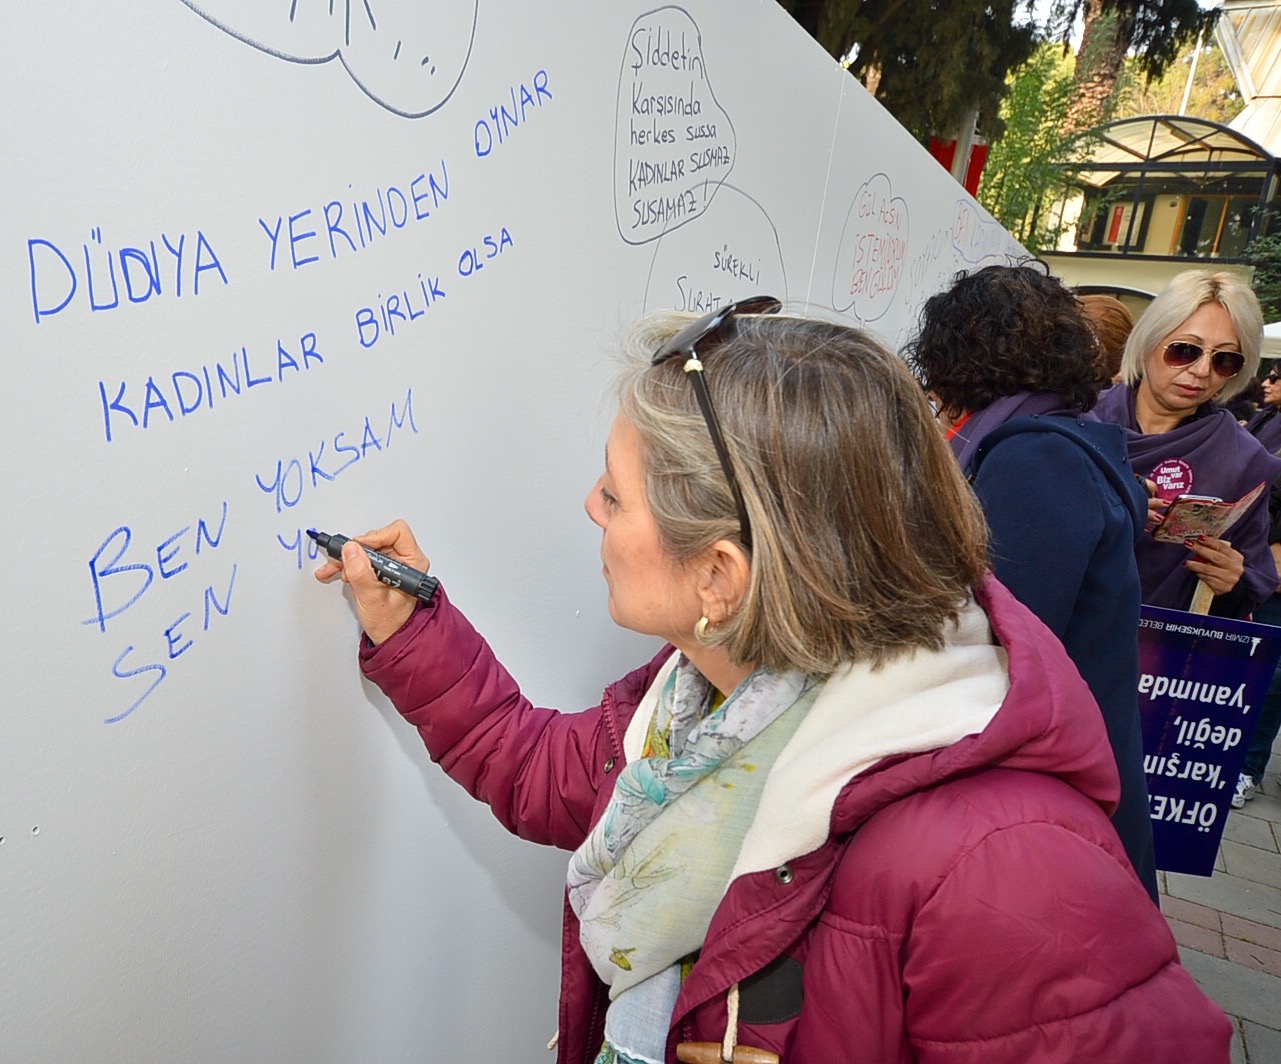 DÜNYA YERİNDEN OYNAR
KADINLAR BİRLİK OLSA
BEN YOKSAM
SEN YO
Şiddetin
Karşısında
herkes sussa
KADINLAR SUSMAZ
SUSAMAZ!
SÜREKLİ
GÜL
İSTEMİYORUM
Umut
var
Biz
varız
İZMİR BÜYÜKŞEHİR BELED
yanımda
değil,
'karşın
ÖFKE